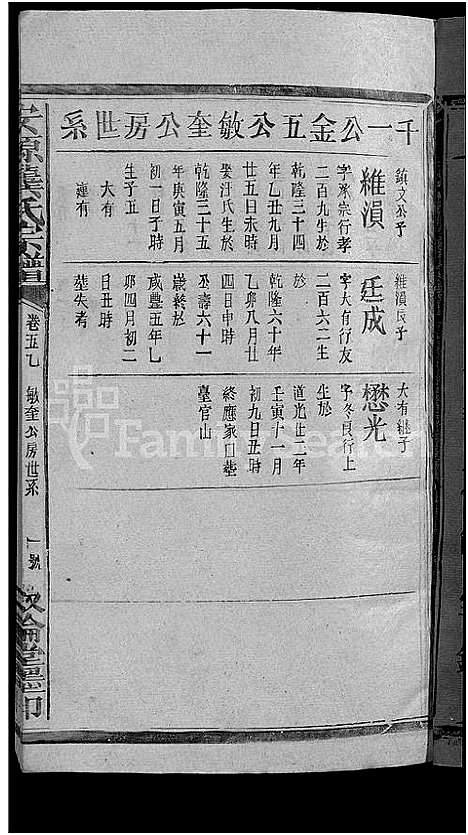 千一公金五公敏奎公房世系
鎮文公子
維湨
字承宗行孝
二百九生於
乾隆三十四
年乙丑九月
廿五日永時
娶汪氏生於
乾隆三十五
年庚寅五月
初一日子時
生子五
大有
維湨長子
廷成
字大有行友
二百六二生
於
乾隆六十年
乙卯八月廿
四日申時
公壽六十一
歲終於
咸豐五年乙
卯四月初二
日丑時
塟失考
大有繼子
懋光
字冬良行上
生於
道光廿二年
壬寅十一月
初九日丑時
終應家口塟
臺官山
宗譜
卷五乁
敏奎公房世系
一號
敘倫堂
印
FamilySearch